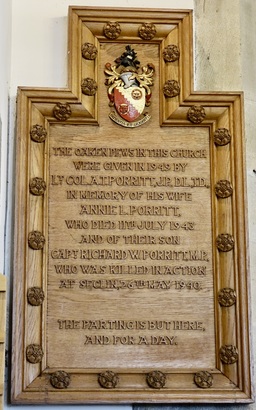 THE OAKEN PEWS IN THIS CHURCH
WERE GIVEN IN 1945 BY
LT COL. A.T. PORRITT, J.P., D.L., T.D.,
IN MEMORY OF HIS WIFE
ANNIE L. PORRITT,
WHO DIED 11TH JULY 1943
AND OF THEIR SON
CAPT RICHARD W. PORRITT, M.P.
WHO WAS KILLED IN ACTION
AT SECLIN, 26TH MAY 1940.
THE PARTING IS BUT HERE,
AND FOR A DAY.